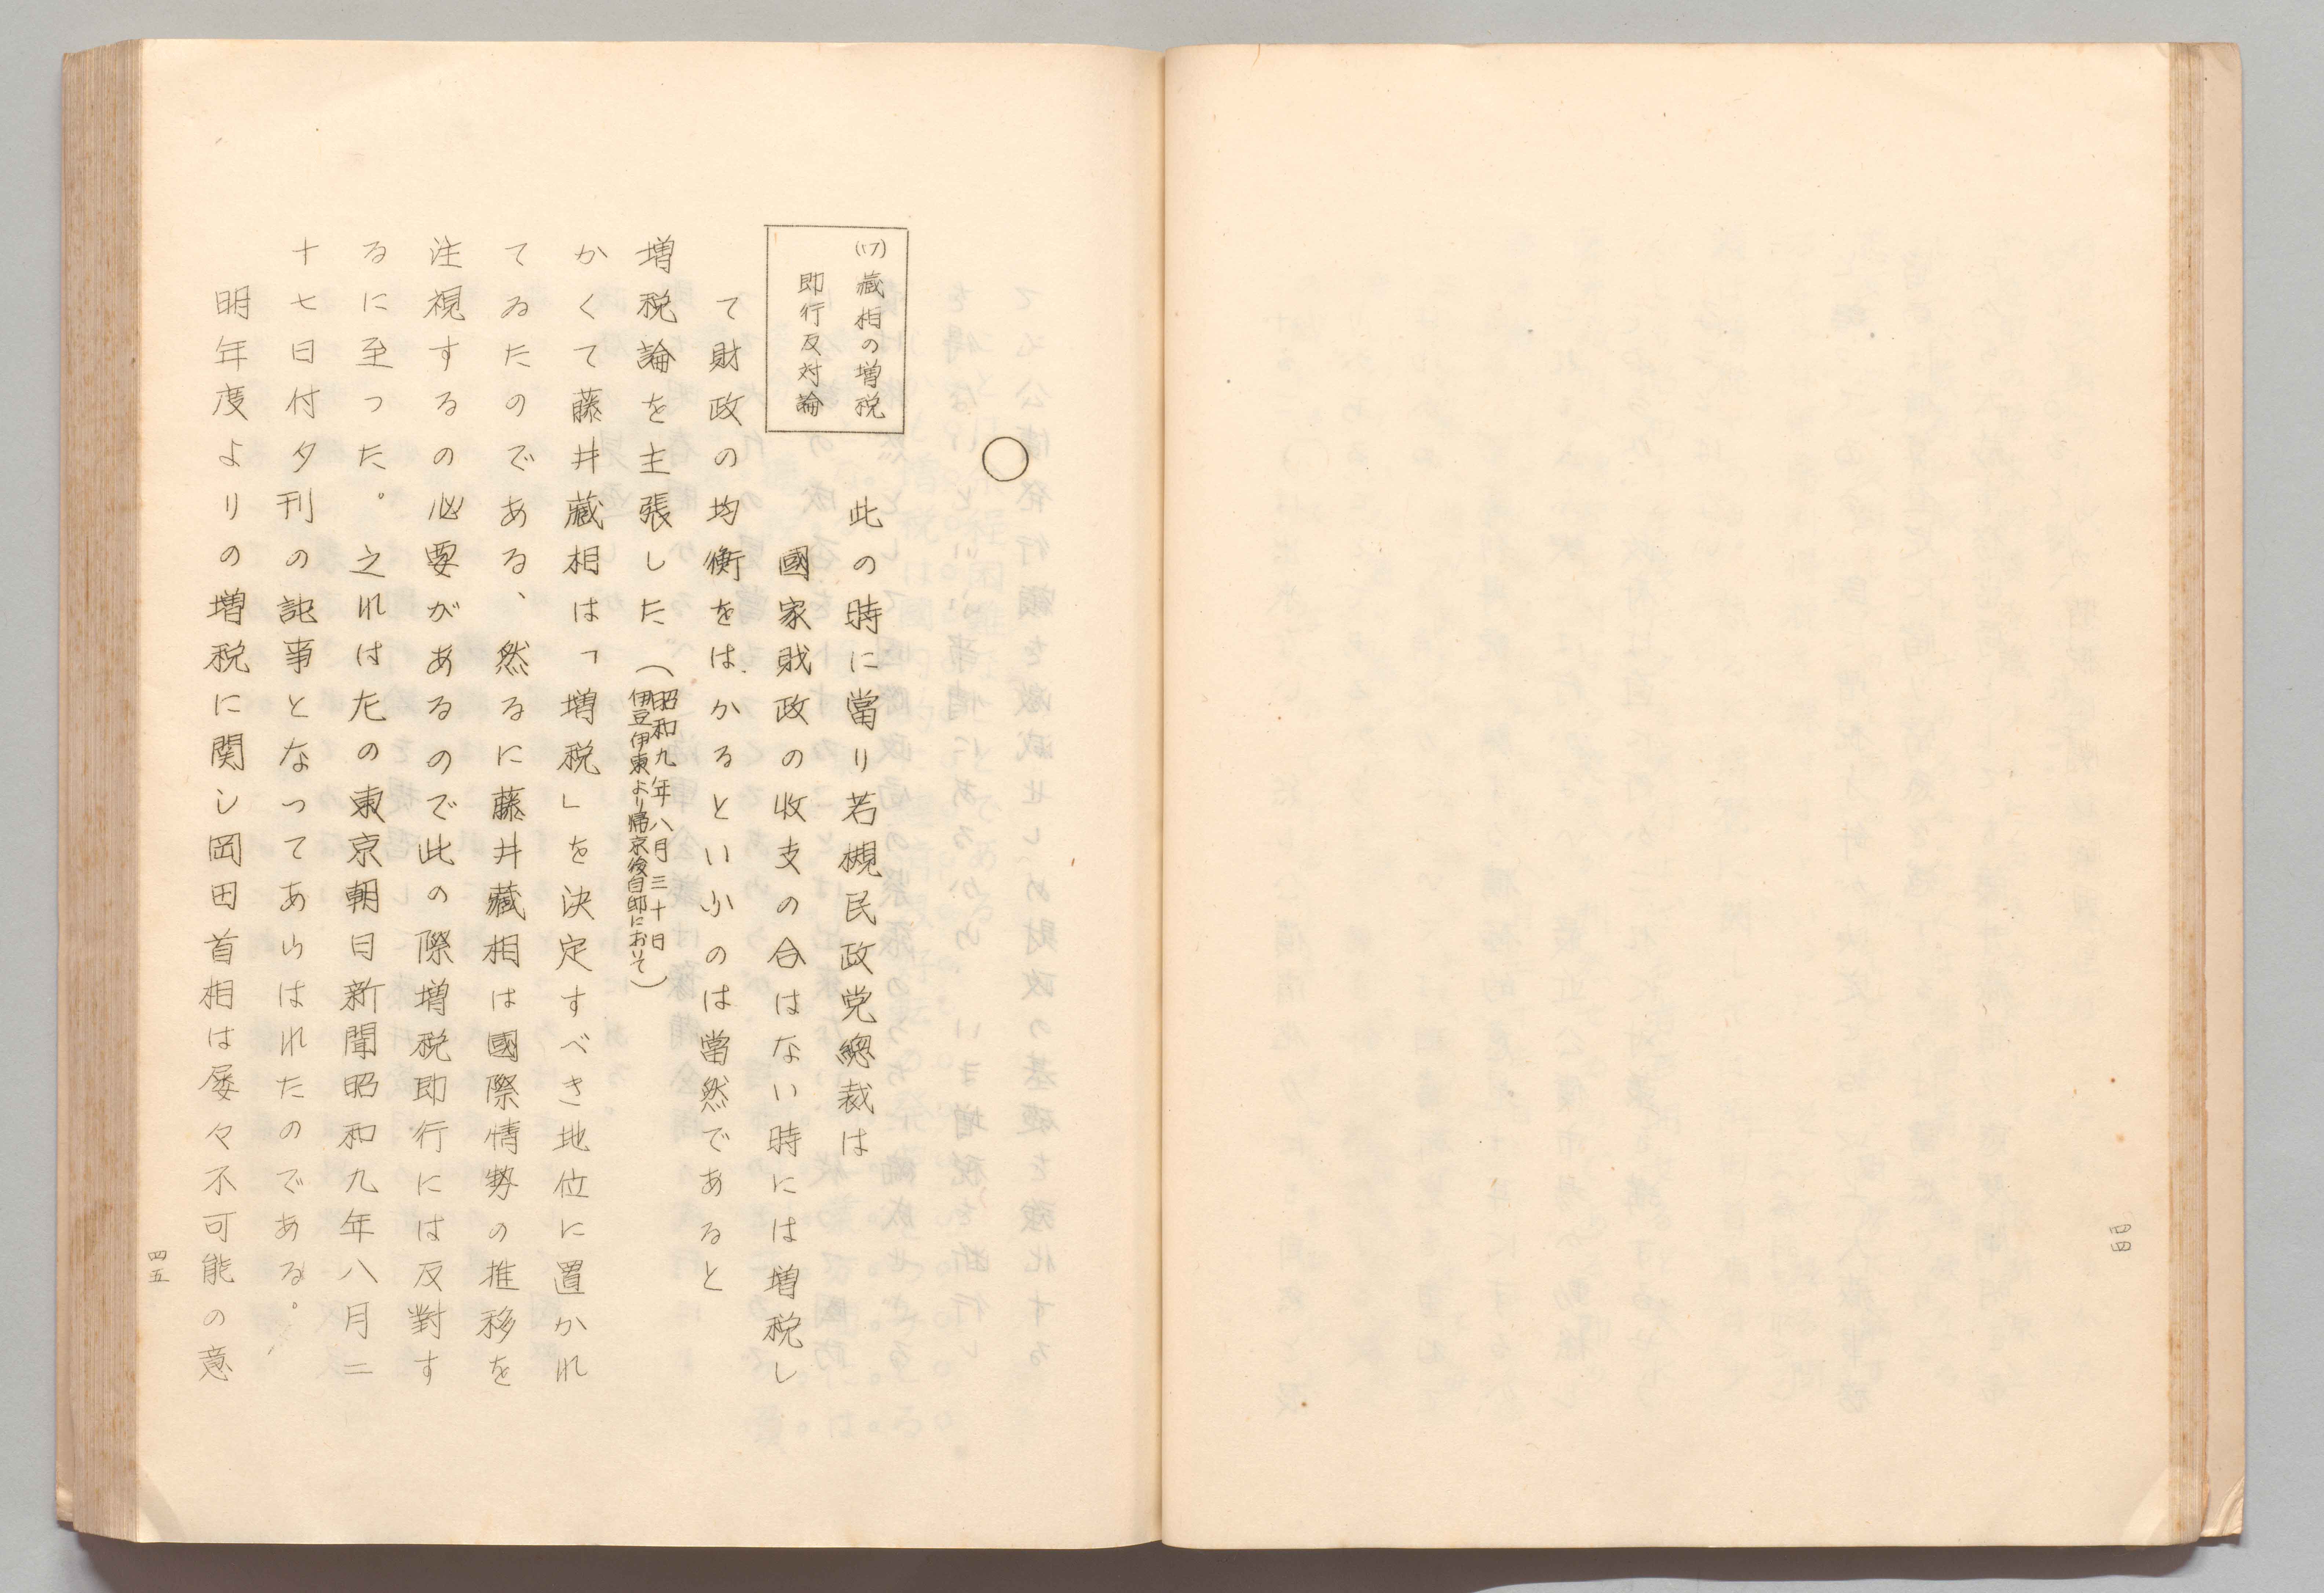 四四
○
(17)藏相の増税
即行反対論
此の時に當り若槻民政党總裁は
國家財政の收支の合はない時には増税し
て財政の均衡をはかるといふのは當然であると
増税論を主張した(昭和九年八月三十日
伊豆伊東より帰京後自邸において)
かくて藤井藏相は「増税」を決定すべき地位に置かれ
てゐたのである、然るに藤井藏相は國際情勢の推移を
注視するの必要があるので此の際増税即行には反對す
るに至った。之れは左の東京朝日新聞昭和九年八月二
十七日付夕刊の記事となってあらはれたのである。
明年度よりの増税に関し岡田首相は屡々不可能の意
四五